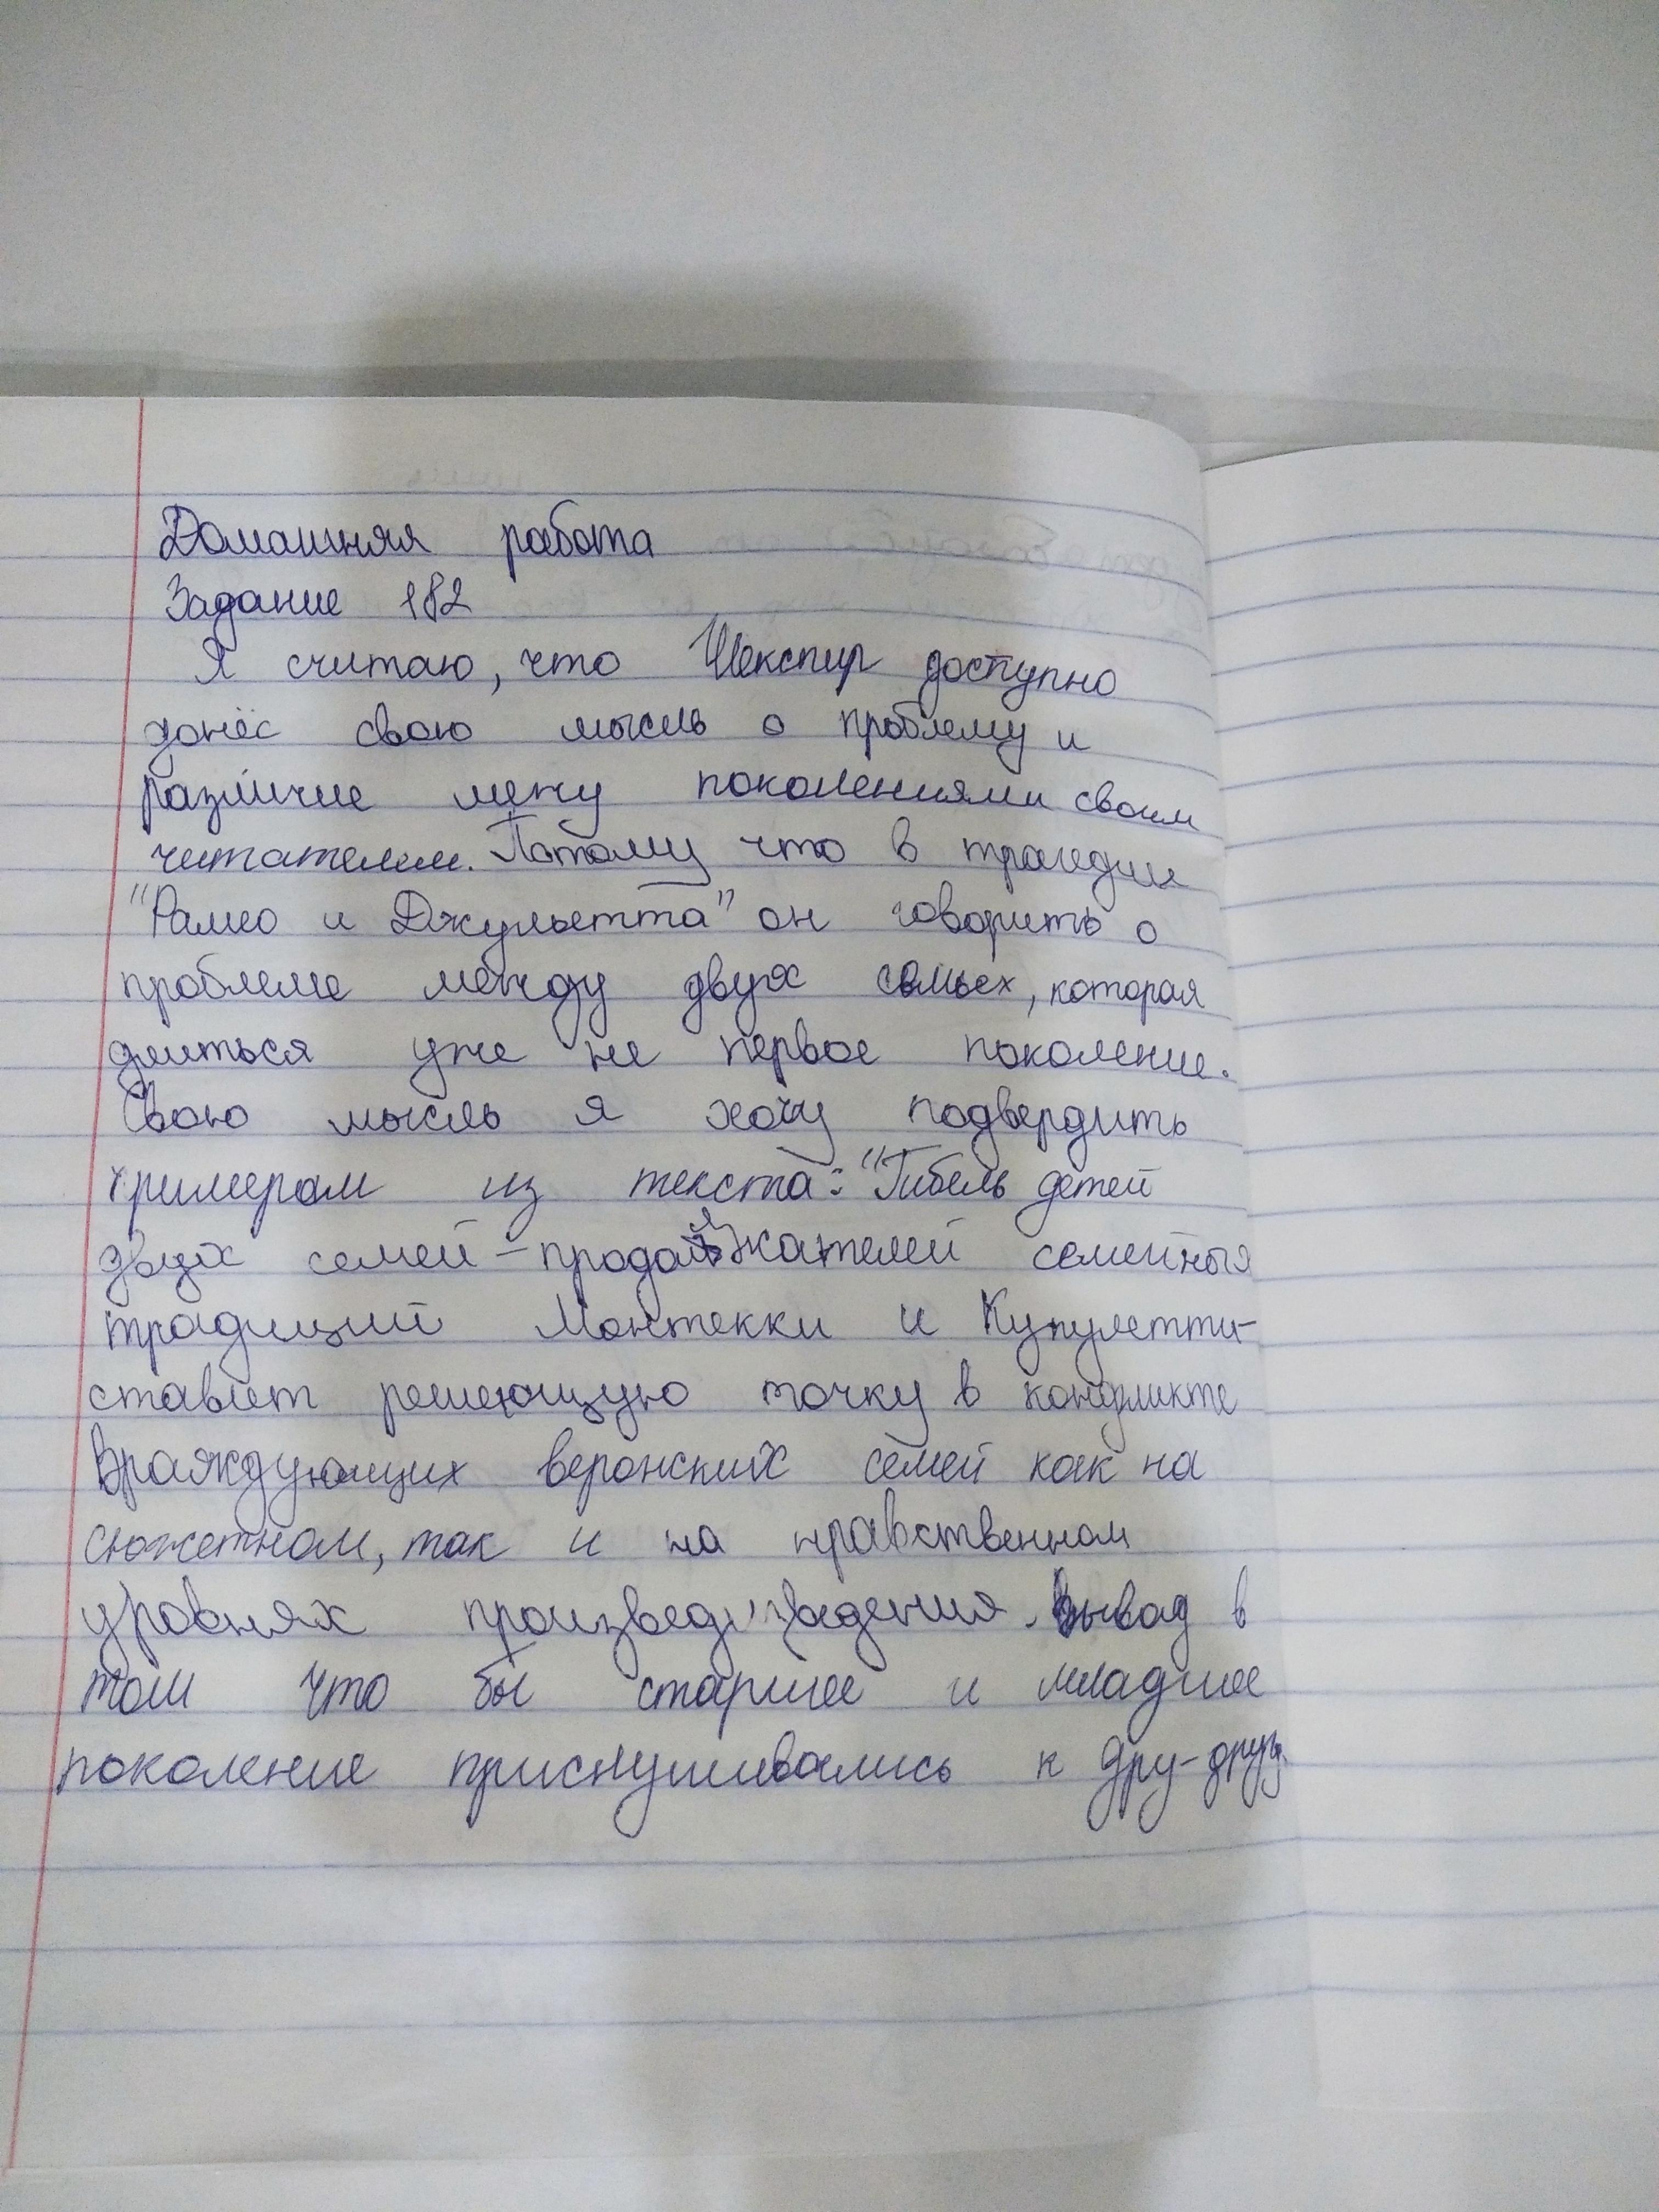 Домашняя работа
Задание 182
Я считаю, что Шекспир доступно
донёс свою мысль о проблему и
различие межу поколениями своим
читателем. Потому что в трагедии
"Рамео и Джульетта" он говорить о
проблеме между двух семьех, которая
длиться уже не первое поколение.
Свою мысль я хочу подвердить
примером из текста: "Гибель детей
двух семей - продолжателей семейныя
традиций Монтекки и Купулетти-
ставит решеющую точку в конфликте
враждующих веронских семей как на
сюжетном, так и на нравственном
уровнях
вывод в
том что бы старшее и младшее
поколение прислушивались к дру-другу.